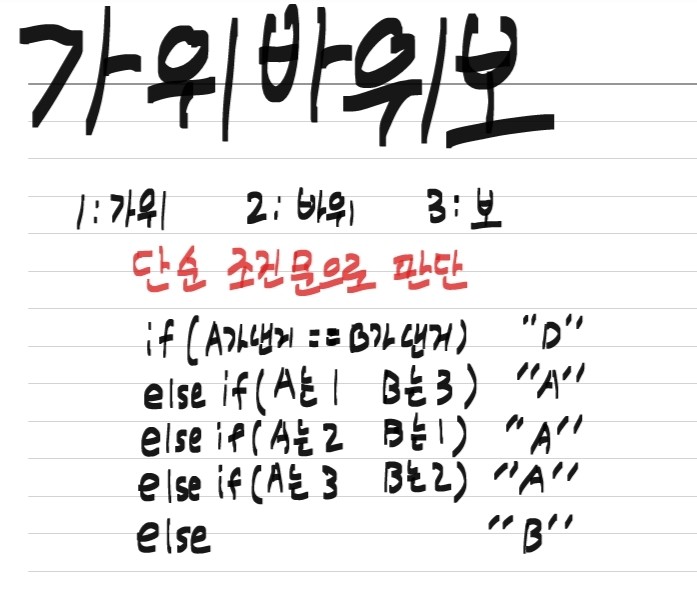 가위바위보
1:가위 2: 바위 3: 보
단순 조건문으로 판단
if (A가낸게 == B가 낸거) "D"
else if(A는 1 B는 3) "A"
else if(A는 2 B는 1) "A"
else if(A는 3 B는 2) "A"
else "B"